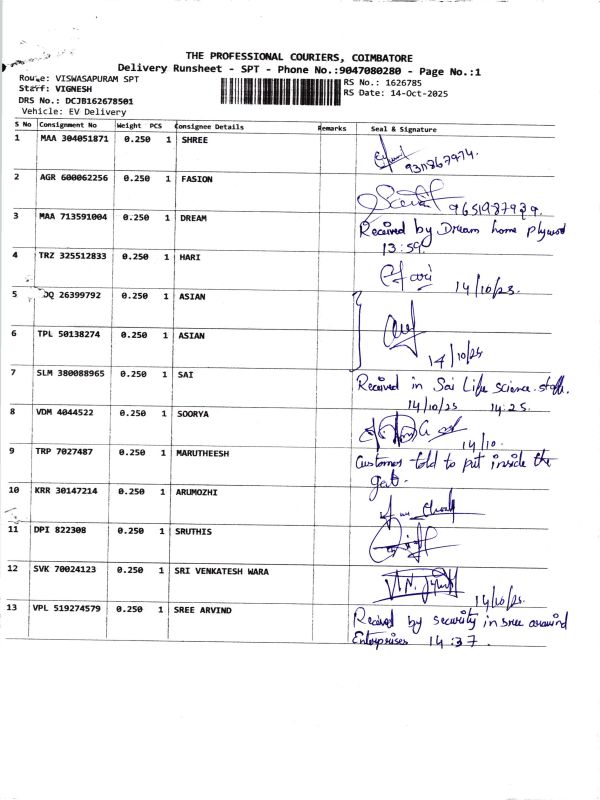 THE PROFESSIONAL COURIERS, COIMBATORE
Delivery Runsheet - SPT - Phone No.:9047080280 - Page No.:1
Route: VISWASAPURAM SPT
RS No.: 1626785
Staff: VIGNESH
RS Date: 14-Oct-2025
DRS No.: DCJB162678501
Vehicle: EV Delivery
S No Consignment No Weight PCS Consignee Details Remarks Seal & Signature
1 MAA 304051871 0.250 1 SHREE
2 AGR 600062256 0.250 1 FASION
3 MAA 713591004 0.250 1 DREAM Received by Dream home plywood
13:59.
4 TRZ 325512833 0.250 1 HARI Hari 14/10/25.
5 26399792 0.250 1 ASIAN
6 TPL 50138274 0.250 1 ASIAN 14/10/25
7 SLM 380088965 0.250 1 SAI Received in Sai Life science staff.
14/10/25 14:25.
8 VDM 4044522 0.250 1 SOORYA 14/10.
9 TRP 7027487 0.250 1 MARUTHEESH Customer told to put inside the
gate.
10 KRR 30147214 0.250 1 ARUMOZHI
11 DPI 822308 0.250 1 SRUTHIS
12 SVK 70024123 0.250 1 SRI VENKATESH WARA 14/10/25.
13 VPL 519274579 0.250 1 SREE ARVIND Received by security in sree aravind
Enterprises 14:37.